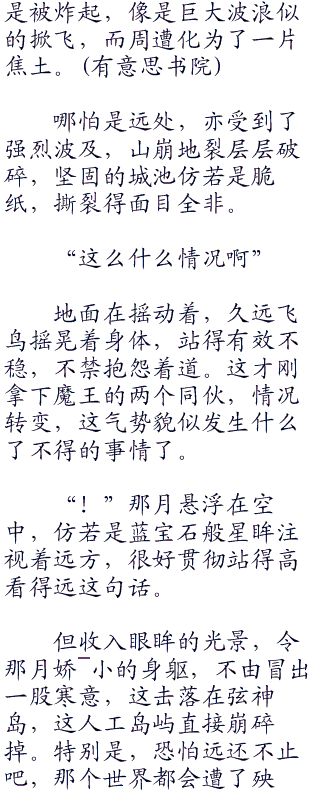 是被炸起，像是巨大波浪似
的掀飞，而周遭化为了一片
焦土。(有意思书院)
哪怕是远处，亦受到了
强烈波及，山崩地裂层层破
碎，坚固的城池仿若是脆
纸，撕裂得面目全非。
“这么什么情况啊”
地面在摇动着，久远飞
鸟摇晃着身体，站得有效不
稳，不禁抱怨着道。这才刚
拿下魔王的两个同伙，情况
转变，这气势貌似发生什么
了不得的事情了。
“！”那月悬浮在空
中，仿若是蓝宝石般星眸注
视着远方，很好贯彻站得高
看得远这句话。
但收入眼眸的光景，令
那月娇¯小的身躯，不由冒出
一股寒意，这击落在弦神
岛，这人工岛屿直接崩碎
掉。特别是，恐怕远还不止
吧，那个世界都会遭了殃